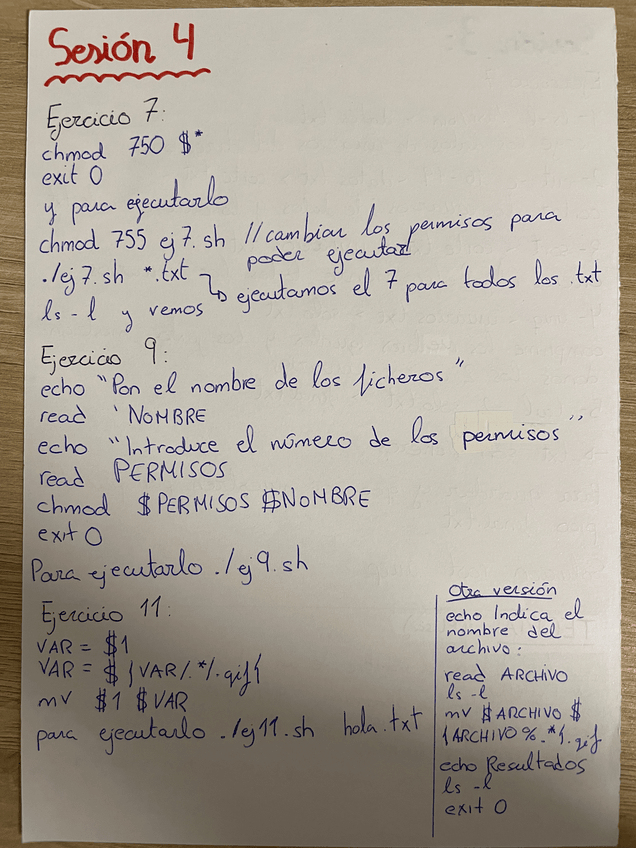 Sesión 4
Ejercicio 7:
chmod 750 $*
exit 0
y para ejecutarlo
chmod 755 ej7.sh //cambiar los permisos para
poder ejecutar
./ej7.sh *.txt ↳ ejecutamos el 7 para todos los .txt
ls -l y vemos
Ejercicio 9:
echo "Pon el nombre de los ficheros"
read 'NOMBRE
echo "Introduce el número de los permisos"
read PERMISOS
chmod $PERMISOS $NOMBRE
exit 0
Para ejecutarlo ./ej9.sh
Ejercicio 11:
VAR = $1
VAR = ${VAR/.*/.gif{
mv $1 $VAR
para ejecutarlo ./ej11.sh hola.txt
Otra versión
echo Indica el
nombre del
archivo:
read ARCHIVO
ls -l
mv $ARCHIVO $
{ARCHIVO%.*}.gif
echo Resultados
ls -l
exit 0